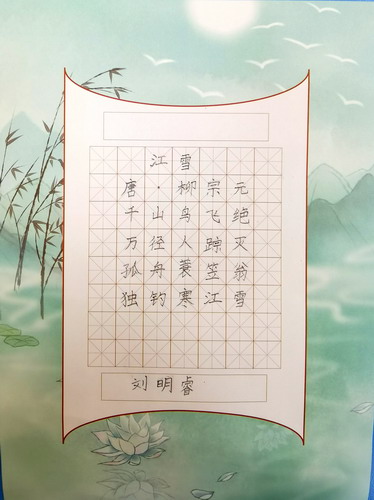 江雪
唐·柳宗元
千山鸟飞绝
万径人踪灭
孤舟蓑笠翁
独钓寒江雪
刘明睿